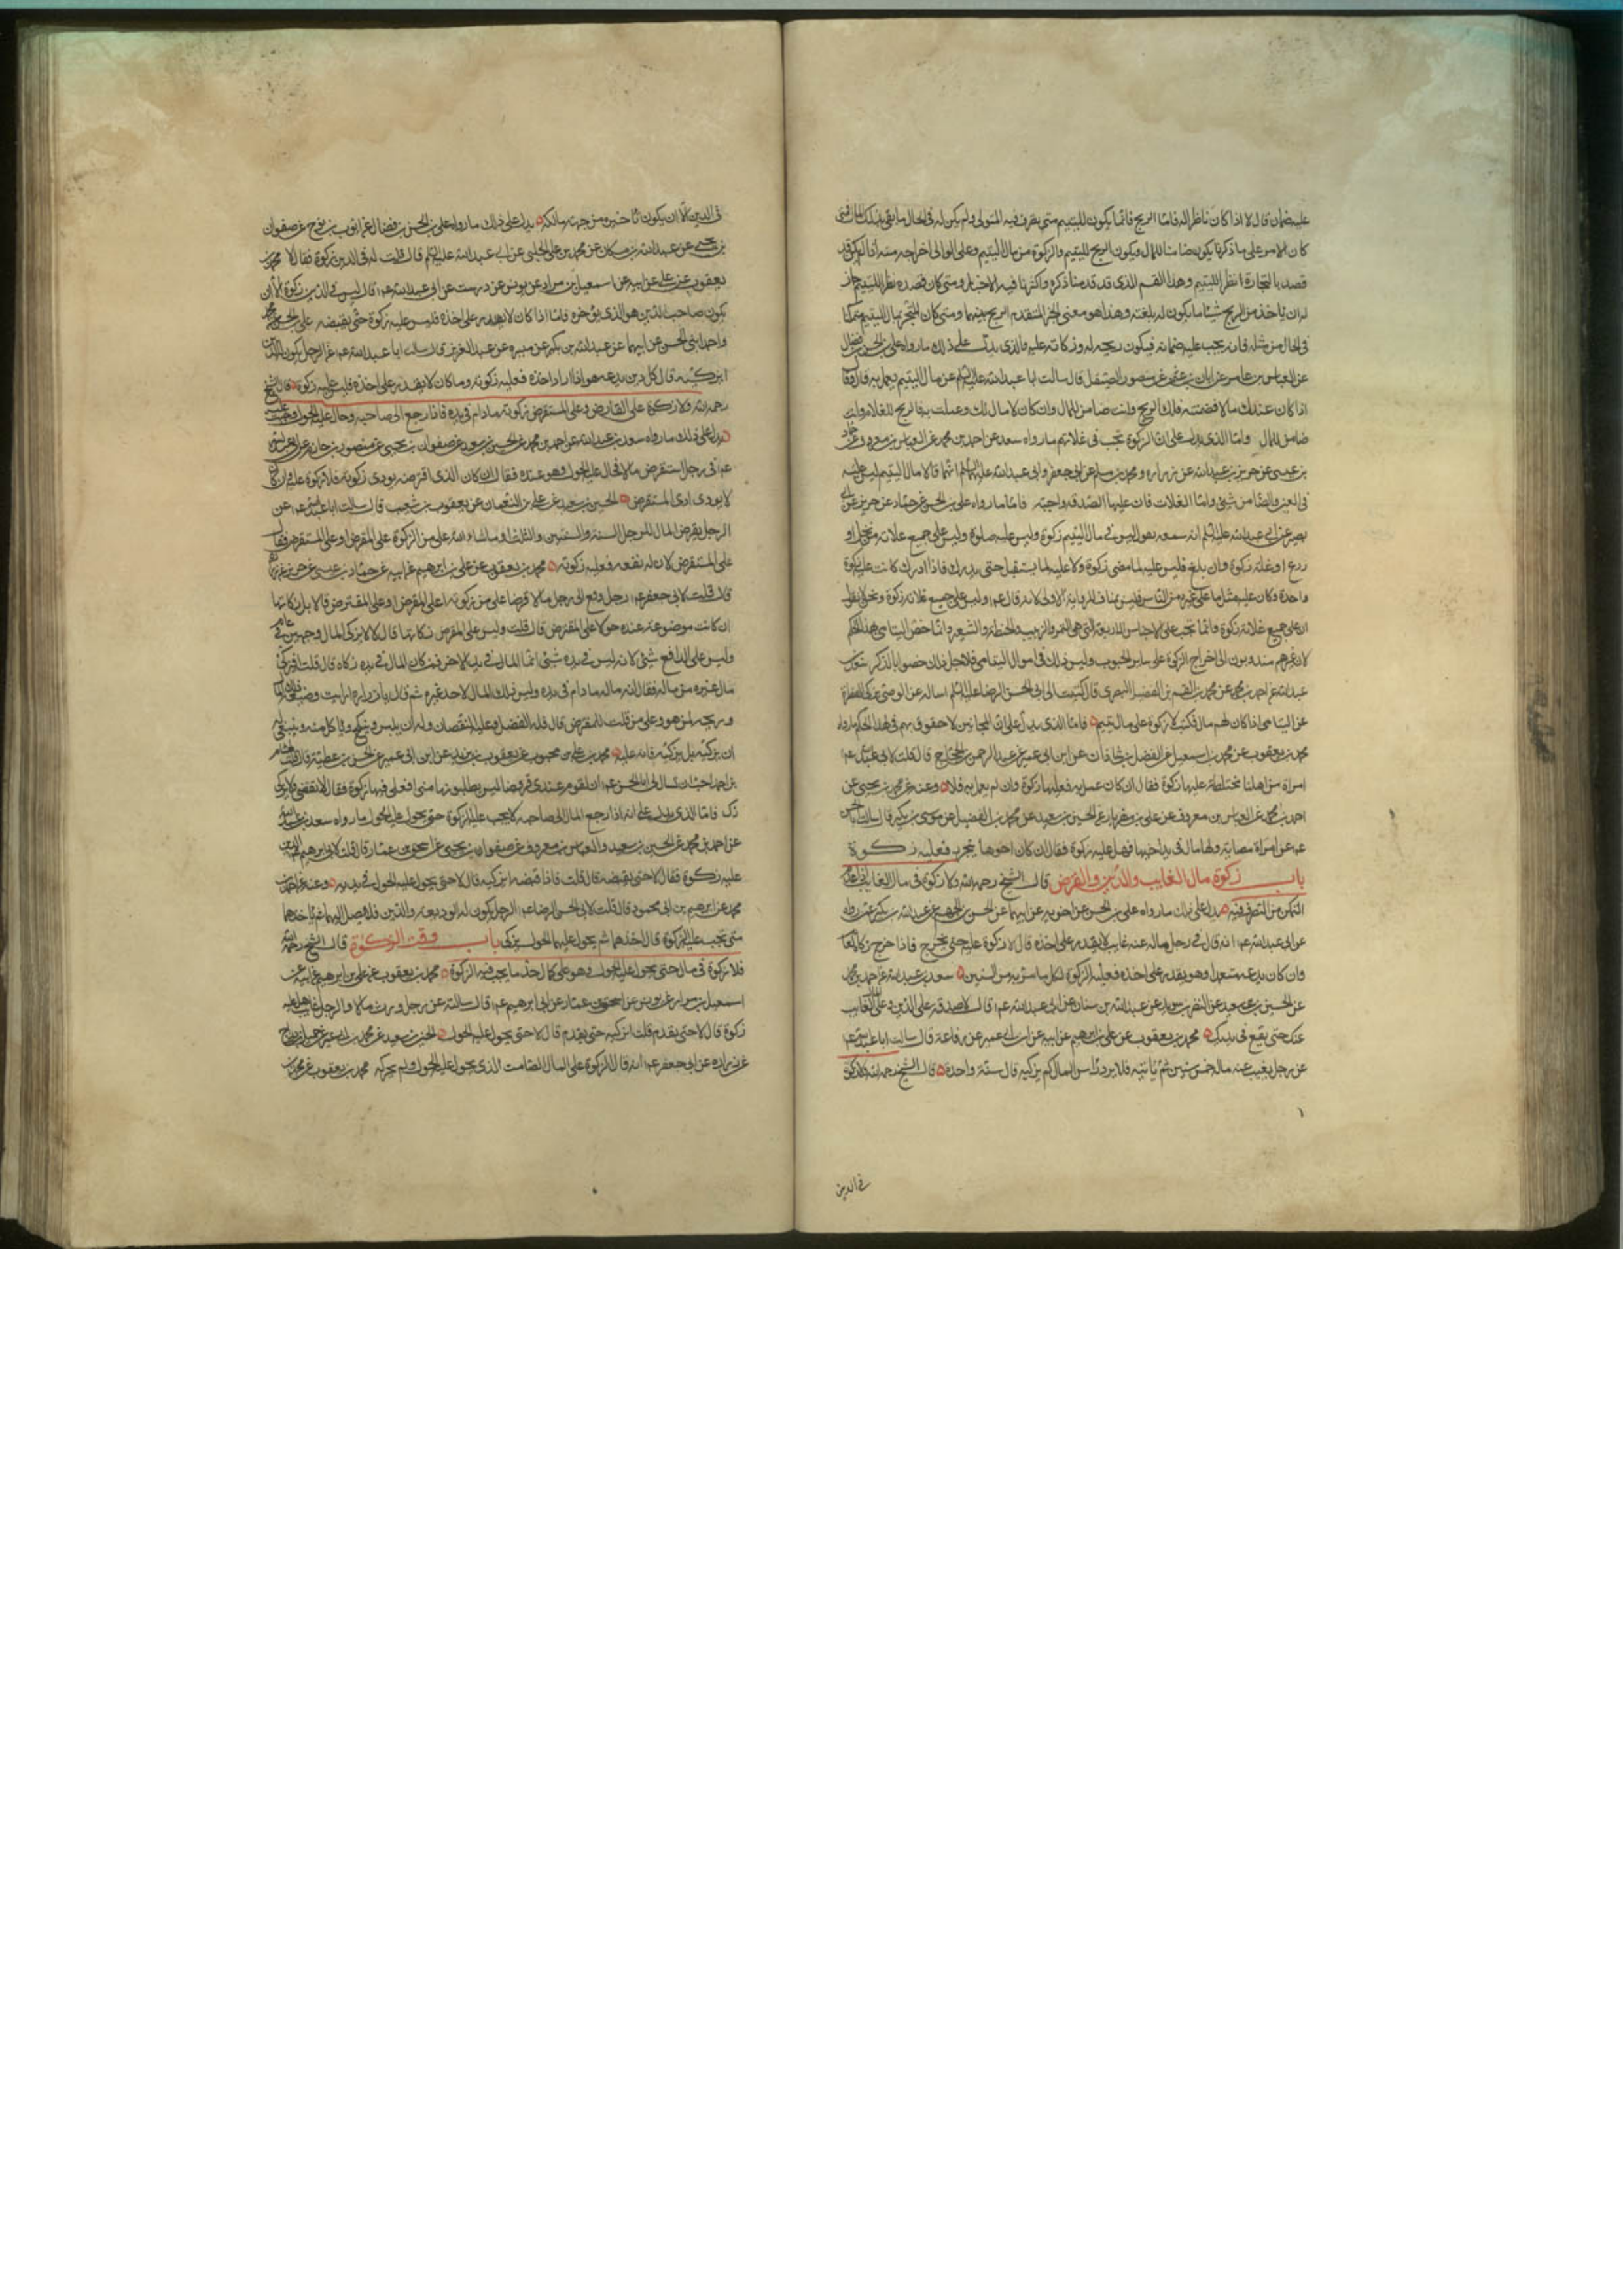 عليه ضمان قال لا اذا كان ناظرا له فاما الربح فانما يكون لليتيم متى تصرف فيه المتولى ولم يكن له فى الحال ما يفى بذلك المال فمتى
كان الامر على ما ذكرنا يكون ضامنا للمال ويكون الربح لليتيم والزكوة من مال اليتيم وعلى الوالى اخراجه منه اذا لم يكن قد
قصد بالتجارة نظرا لليتيم وهذا القسم الذى قد قدمنا ذكره واكثرنا فيه الاخبار ومتى كان قصده نظرا لليتيم جاز
له ان ياخذ من الربح شيئا ما يكون له بلغته وهذا هو معنى الخبر المتقدم الربح بينهما ومتى كان المتجر بمال اليتيم متمكنا
فى الحال من مثله فانه يجب عليه ضمانه فيكون ربحه له وزكاته عليه والذى يدل على ذلك ما رواه على بن الحسن بن فضال
عن العباس بن عامر عن ابان بن عثمن عن منصور الصيقل قال سالت ابا عبد الله عليه السلم عن مال اليتيم يعمل به قال فقال
اذا كان عندك مال وضمنته فلك الربح وانت ضامن للمال وان كان لا مال لك وعملت به فالربح للغلام وانت
ضامن للمال واما الذى يدل على ان الزكوة تجب فى غلاتهم ما رواه سعد عن احمد بن محمد عن العباس بن معروف عن حماد
بن عيسى عن حريز بن عبد الله عن زراره ومحمد بن مسلم عن ابى جعفر وابى عبد الله عليهما السلم انهما قالا مال اليتيم ليس عليه
فى العين والصامت شئ واما الغلات فان عليها الصدقه واجبة فاما ما رواه على بن الحسن عن حماد عن حريز عن ابى
بصير عن ابى عبد الله عليه السلم انه سمعه يقول ليس فى مال اليتيم زكوة وليس عليه صلوة وليس على جميع غلاته من نخل او
زرع او غلة زكوة وان بلغ فليس عليه لما مضى زكوة ولا عليه لما يستقبل حتى يدرك فاذا ادرك كانت عليه زكوة
واحدة وكان عليه مثل ما على غيره من الناس فليس بمناف للرواية الاولى لانه قال عم وليس على جميع غلاته زكوة ونحن لا نقول
ان على جميع غلاته زكوة وانما تجب على الاجناس الاربعة التى هى التمر والزبيب والحنطة والشعير وانما خص اليتامى بهذا الحكم
لان غيرهم مندوبون الى اخراج الزكوة على سائر الحبوب وليس ذلك فى اموال اليتامى فلاجل ذلك خصوا بالذكر سعد بن
عبد الله عن احمد بن محمد عن محمد بن القسم بن الفضيل البصرى قال كتبت الى ابى الحسن الرضا عليه السلم اساله عن الوصى يزكى زكوة الفطرة
عن اليتامى اذا كان لهم مال فكتب لا زكوة على مال يتيم فاما الذى يدل على ان المجانين لاحقون بهم فى هذا الحكم ما رواه
محمد بن يعقوب عن محمد بن اسمعيل عن الفضل بن شاذان عن ابن ابى عمير عن عبد الرحمن بن الحجاج قال قلت لابى عبد الله عم
امراة من اهلنا مختلطة عليها زكوة فقال ان كان عمل به فعليها زكوة وان لم يعمل به فلا وعنه عن محمد بن يحيى عن
احمد بن محمد عن العباس بن معروف عن على بن مهزيار عن الحسين بن سعيد عن محمد بن الفضيل عن موسى بن بكير قال سالت ابا الحسن
عم عن امراة مصابة ولها مال فى يد اخيها فهل عليه زكوة فقال ان كان اخوها يتجر به فعليه زكوة
باب زكوة مال الغايب والدين والقرض قال الشيخ رحمه الله ولا زكوة فى مال الغايب اذا عدم
التمكن من التصرف فيه يدل على ذلك ما رواه على بن الحسن عن اخويه عن ابيهما عن الحسن بن الجهم عن عبد الله بن بكير عن زرارة
عن ابى عبد الله عم انه قال فى رجل ماله عنه غايب لا يقدر على اخذه قال لا زكوة عليه حتى يخرج فاذا خرج زكاه لعام
وان كان يدعه متعمدا وهو يقدر على اخذه فعليه الزكوة لكل ما مر به من السنين سعد بن عبد الله عن احمد بن محمد
عن الحسين بن سعيد عن النضر بن سويد عن عبد الله بن سنان عن ابى عبد الله عم قال لا صدقة على الدين ولا على المال الغايب
عنك حتى يقع فى يديك محمد بن يعقوب عن على بن ابرهيم عن ابيه عن ابن ابى عمير عن رفاعة قال سالت ابا عبد الله عم
عن رجل يغيب عنه ماله خمس سنين ثم ياتيه فلا يرد راس المال كم يزكيه قال سنة واحدة قال الشيخ رحمه الله ولا زكوة
فى الدين
فى الدين الا ان يكون تاخيره من جهة مالكه يدل على ذلك ما رواه على بن الحسن بن فضال عن ايوب بن نوح عن صفوان
بن يحيى عن عبد الله بن مسكان عن محمد بن على الحلبى عن ابى عبد الله عليه السلم قال قلت له فى الدين زكوة فقال لا محمد بن
يعقوب عن على عن ابيه عن اسمعيل بن مرار عن يونس عن درست عن ابى عبد الله عم قال ليس فى الدين زكوة الا ان
يكون صاحب الدين هو الذى يؤخره فاذا كان لا يقدر على اخذه فليس عليه زكوة حتى يقبضه على بن الحسن عن محمد
واحمد ابنى الحسن عن ابيهما عن عبد الله بن بكير عن ميسره عن عبد العزيز قال سالت ابا عبد الله عم عن الرجل يكون له الدين
ايزكيه قال كل دين يدعه هو اذا اراد اخذه فعليه زكوته وما كان لا يقدر على اخذه فليس عليه زكوة قال الشيخ
رحمه الله ولا زكوة على القارض وعلى المستقرض زكوته ما دام فى يده فاذا رجع الى صاحبه وحال عليه الحول وجب عليه
يدل على ذلك ما رواه سعد بن عبد الله عن احمد بن محمد عن الحسين بن سعيد عن صفوان بن يحيى عن منصور بن حازم عن ابى عبد الله
عم فى رجل استقرض مالا فحال عليه الحول وهو عنده فقال ان كان الذى اقرضه يودى زكوته فلا زكوة عليه وان كان
لا يودى ادى المستقرض الحسين بن سعيد عن على بن النعمان عن يعقوب بن شعيب قال سالت ابا عبد الله عم عن
الرجل يقرض المال للرجل السنة والسنتين والثلث او ما شاء الله على من الزكوة على المقرض او على المستقرض فقال
على المستقرض لان له نفعه فعليه زكوته محمد بن يعقوب عن على بن ابرهيم عن ابيه عن حماد بن عيسى عن حريز عن زرارة
قال قلت لابى جعفر عم رجل دفع الى رجل مالا قرضا على من زكوته اعلى المقرض او على المقترض قال لا بل زكاتها
ان كانت موضوعة عنده حولا على المقترض قال قلت وليس على المقرض زكاتها قال لا لا يزكى المال من وجهين فى عام
وليس على الدافع شئ لانه ليس فى يده شئ انما المال فى يد الاخر فمن كان المال فى يده زكاه قال قلت افيزكى
مال غيره من ماله فقال انه ماله ما دام فى يده وليس ذلك المال لاحد غيره ثم قال يا زرارة ارايت وضيعة ذلك المال
وربحه لمن هو وعلى من قلت للمقترض قال فله الفضل وعليه النقصان وله ان يلبس وينكح وياكل منه وينبغى له
ان يزكيه بل يزكيه فانه عليه محمد بن على بن محبوب عن يعقوب بن يزيد عن ابن ابى عمير عن الحسن بن عطية قال قلت لهشام
بن احمر احب ان تسال لى ابا الحسن عم ان لقوم عندى قروضا ليس يطلبونها منى افعلى فيها زكوة فقال لا تقضى ولا تزكى
زك فاما الذى يدل على انه اذا رجع المال الى صاحبه لا يجب عليه الزكوة حتى يحول عليه الحول ما رواه سعد بن عبد الله
عن احمد بن محمد عن الحسين بن سعيد والعباس بن معروف عن صفوان بن يحيى عن اسحق بن عمار قال قلت لابى ابرهيم عم الدين
عليه زكوة فقال لا حتى يقبضه قال قلت فاذا قبضه ايزكيه قال لا حتى يحول عليه الحول فى يديه وعنه عن احمد بن
محمد عن ابرهيم بن ابى محمود قال قلت لابى الحسن الرضا عم الرجل يكون له الوديعة والدين فلا يصل اليهما ثم ياخذهما
متى تجب عليه الزكوة قال اخذهما ثم يحول عليهما الحول يزكى باب وقت الزكوة قال الشيخ رحمه الله
فلا زكوة فى مال حتى يحول عليه الحول وهو على كمال حد ما يجب فيه الزكوة محمد بن يعقوب عن على بن ابرهيم عن ابيه عن
اسمعيل بن مرار عن يونس عن اسحق بن عمار عن ابى ابرهيم عم قال سالته عن رجل ورث مالا والرجل غايب هل عليه
زكوة قال لا حتى يقدم قلت ايزكيه حتى يقدم قال لا حتى يحول عليه الحول الحسين بن سعيد عن محمد بن ابى عمير عن جميل بن دراج
عن زراره عن ابى جعفر عم انه قال الزكوة على المال الصامت الذى يحول عليه الحول ولم يحركه محمد بن يعقوب عن محمد بن